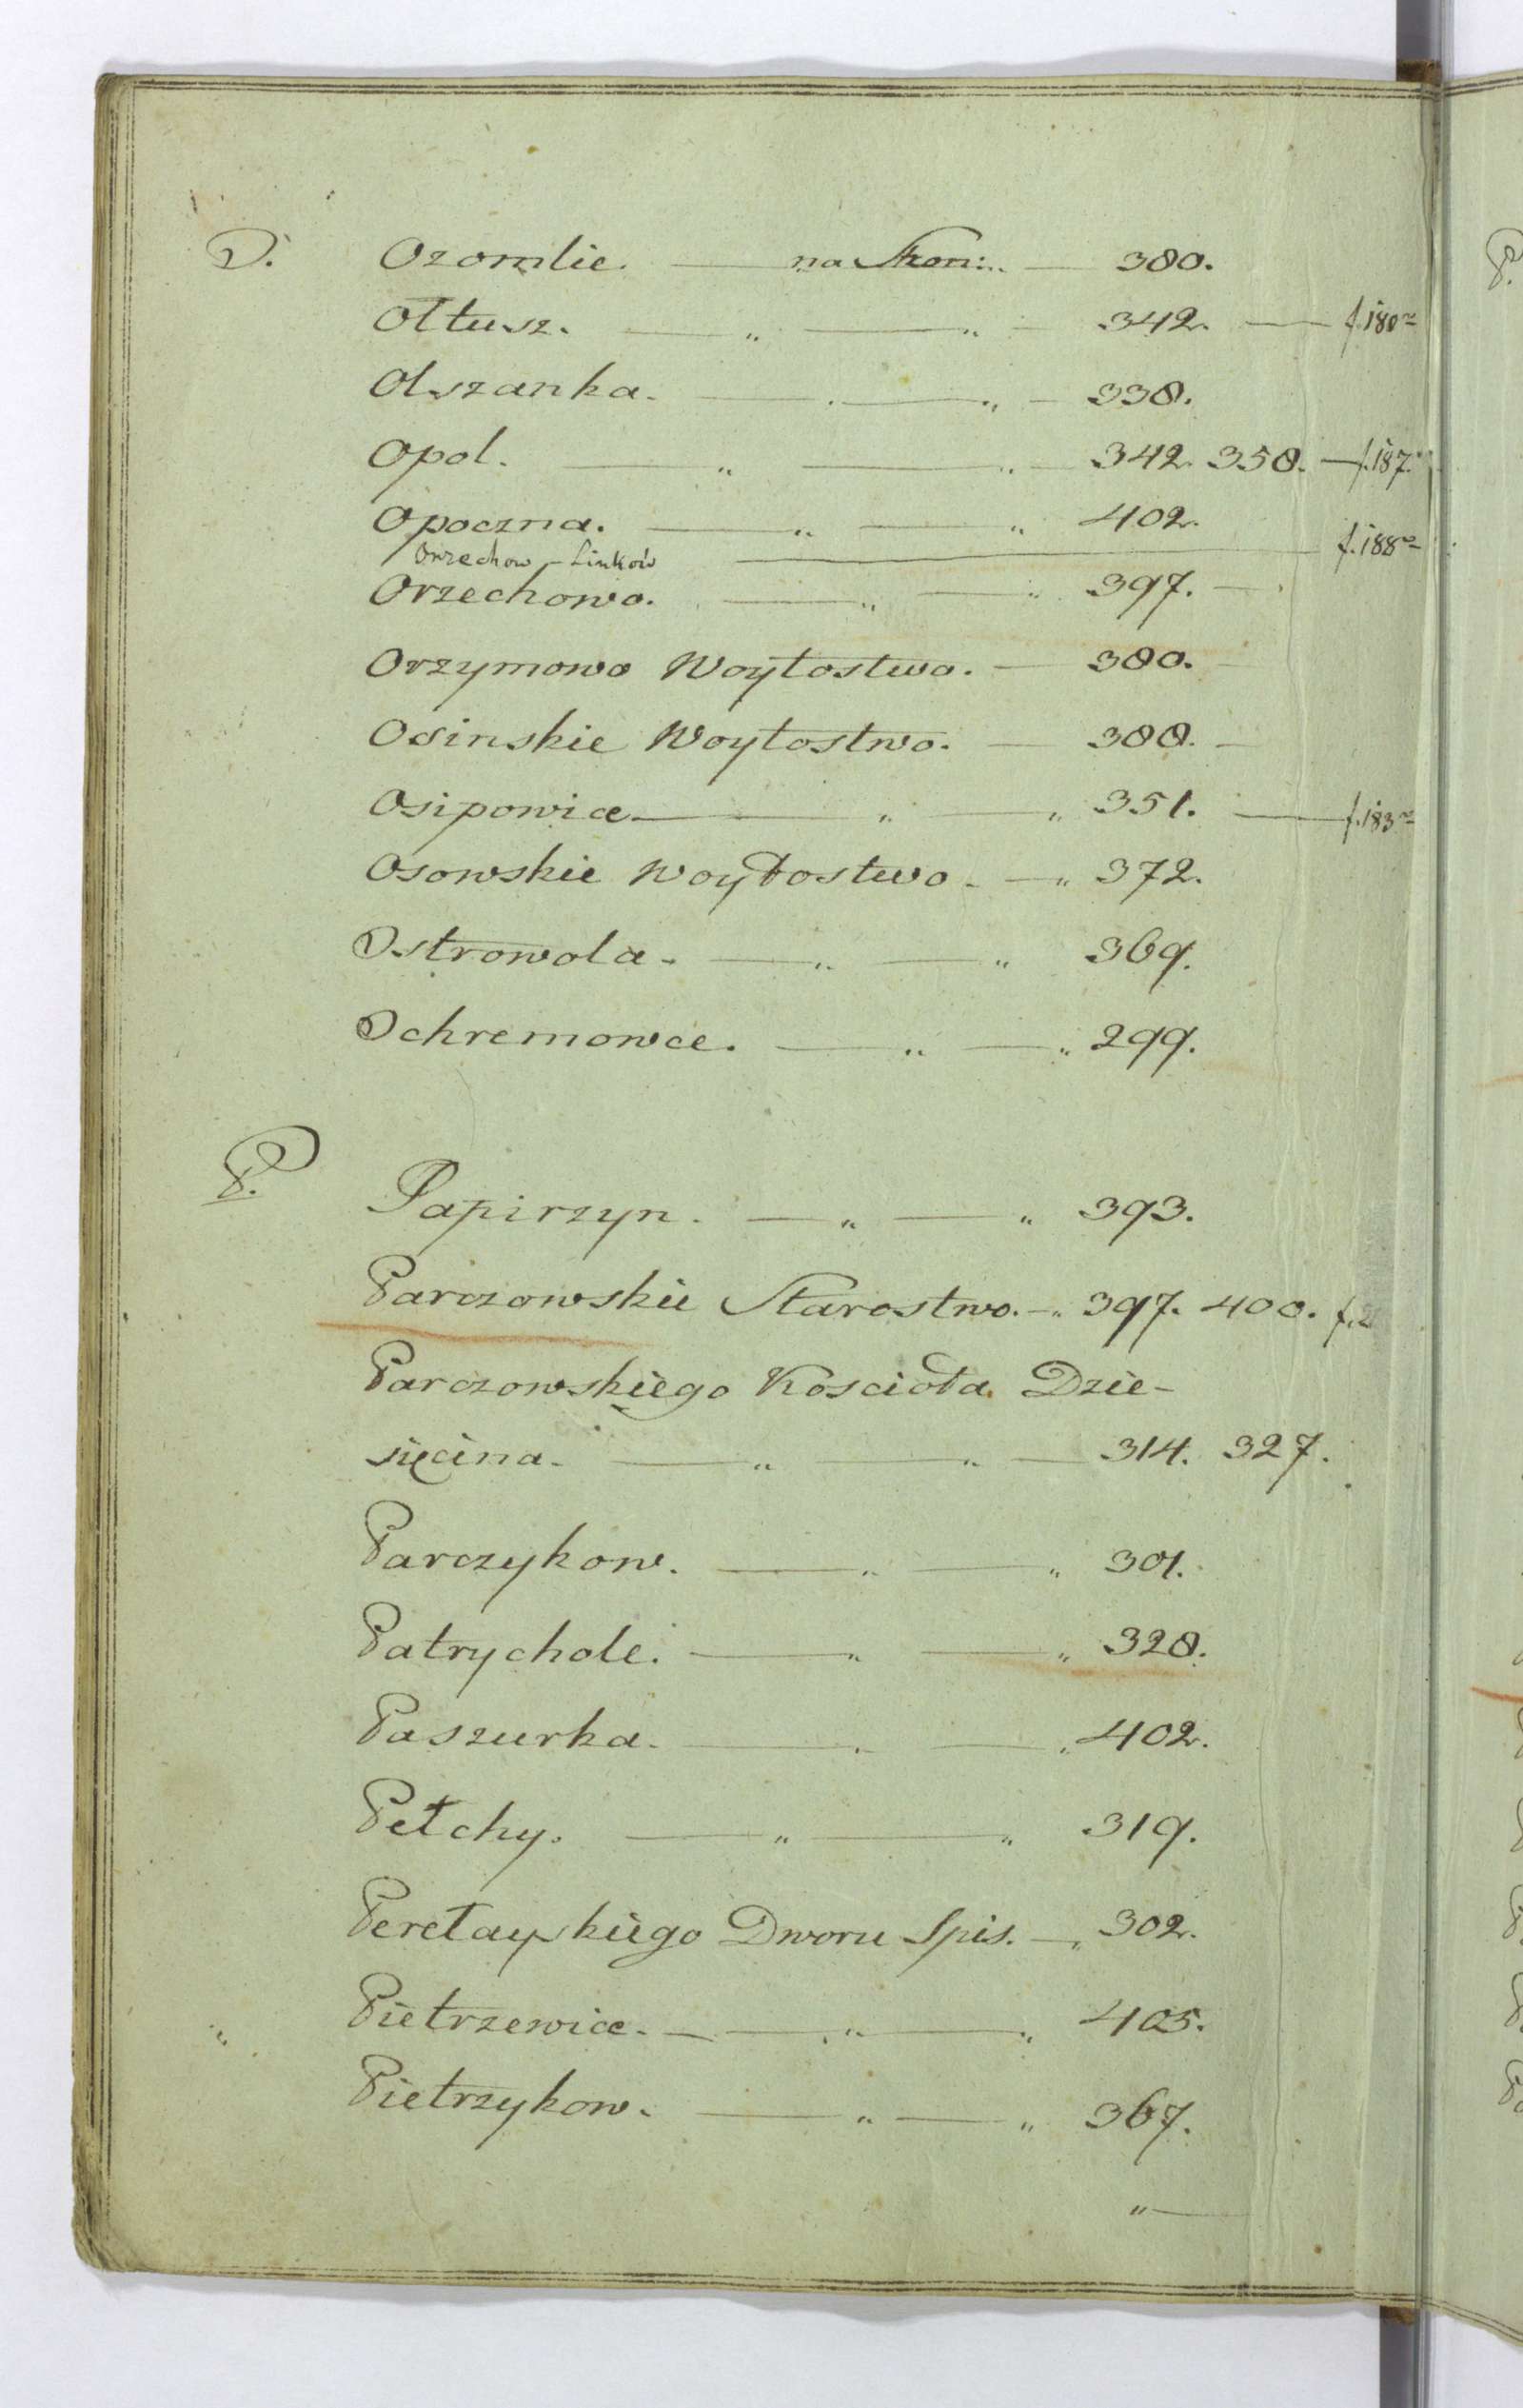 O. Ozomlie. — na Stron:.. — 380.
Ołtusz. — „ — „ — 342. — f. 180
Olszanka. — . — „ — 338.
Opol. — „ — „ — 342. 358. — f. 187.
Opoczna. — „ — „ 402.
Orzechow – Linków — f. 188
Orzechowo. — „ — „ 397. —
Orzymowo Woytostwo. — 380. —
Osinskie Woytostwo. — 388. —
Osipowice — „ — „ 351. — f. 183
Osowskie Woytostwo. — „ 372.
Ostrowola. — „ — „ 369.
Ochremowce. — „ — „ 299.
P. Papirzyn. — „ — „ 393.
Parczowskie Starostwo. — „ 397. 400. f. 2
Parczowskiego Koscioła Dzie-
sięcina. — „ — „ — 314. 327.
Parczykow. — „ — „ 301.
Patrychole. — „ — „ 328.
Paszurka. — „ — „ 402.
Pełchy. — „ — „ 319.
Perełayskiego Dworu Spis. — „ 302.
Pietrzewice. — „ — „ 405.
Pietrzykow. — „ — „ 367.
„ —